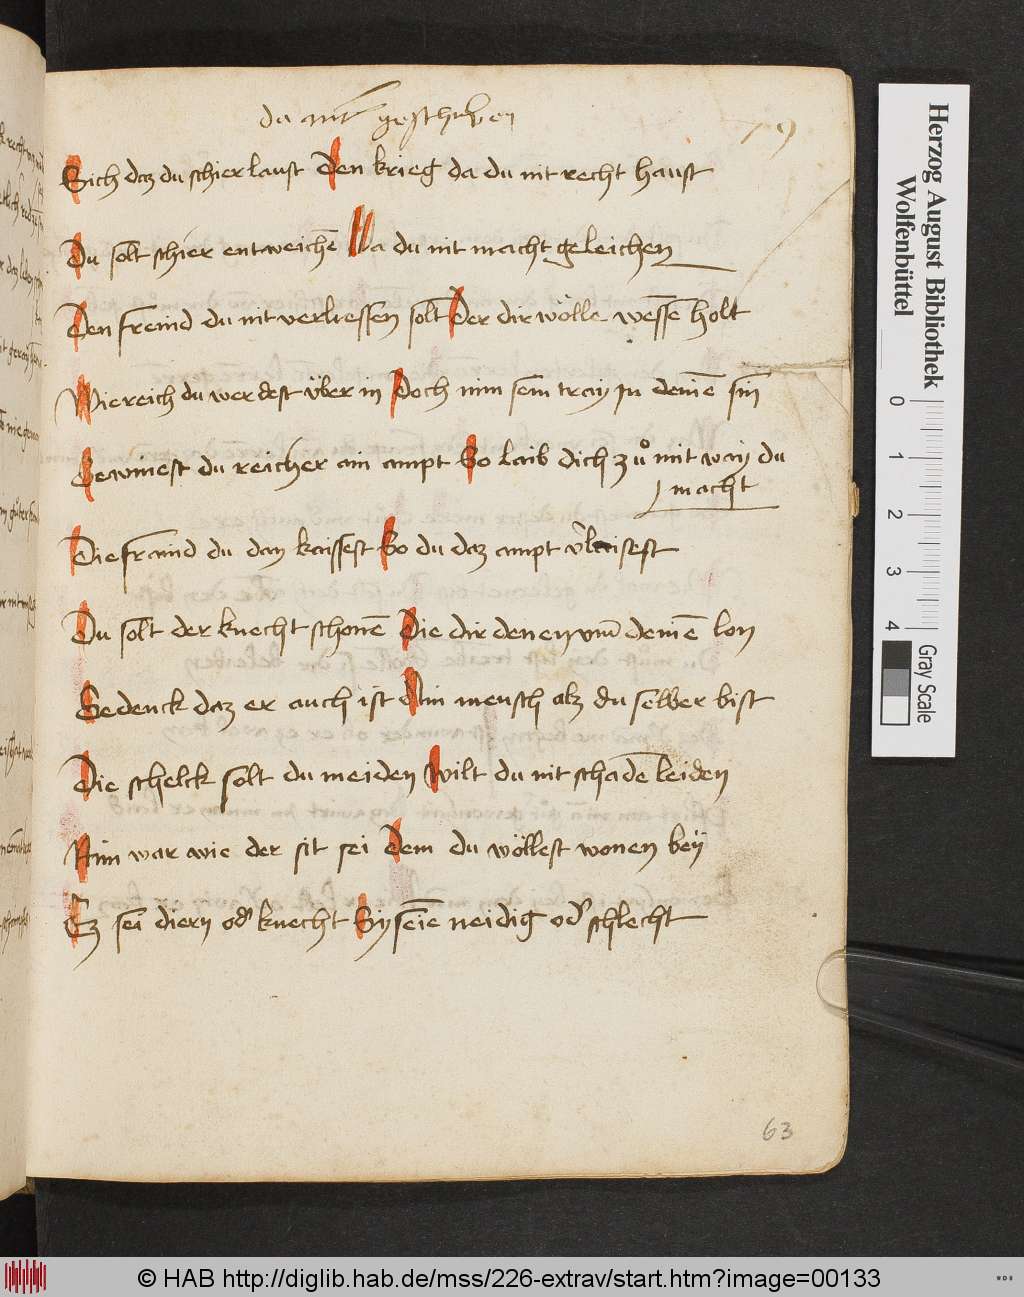 da mit geschriben
79
Sich daz du schier laust Den krieg da du nit recht haust
Du solt schier entweichē Wa du nit macht geleichen
Den freind du nit verliessen solt Der dir wölle wessē holt
Wie reich du werdest über in Doch nim sein tray ȷn deinē sin
Gewinest du reicher ain ampt So laib dich zů mit way du
macht
Die fraind du dan kaissest So du daz ampt v̓laisest
Du solt der knecht schonē Die dir denen vm̄ deinē lon
Gedenck daz er auch ist Ain mensch alz du selber bist
Die schelck solt du meiden Wilt du nit schadē leiden
Nim war wie der sit sei Dem du wöllest wonen beÿ
Ez sei diern od̓ knecht Sy seiē neidig od̓ schlecht
63
Herzog August Bibliothek
Wolfenbüttel
0 1 2 3 4
Gray Scale
© HAB http://diglib.hab.de/mss/226-extrav/start.htm?image=00133